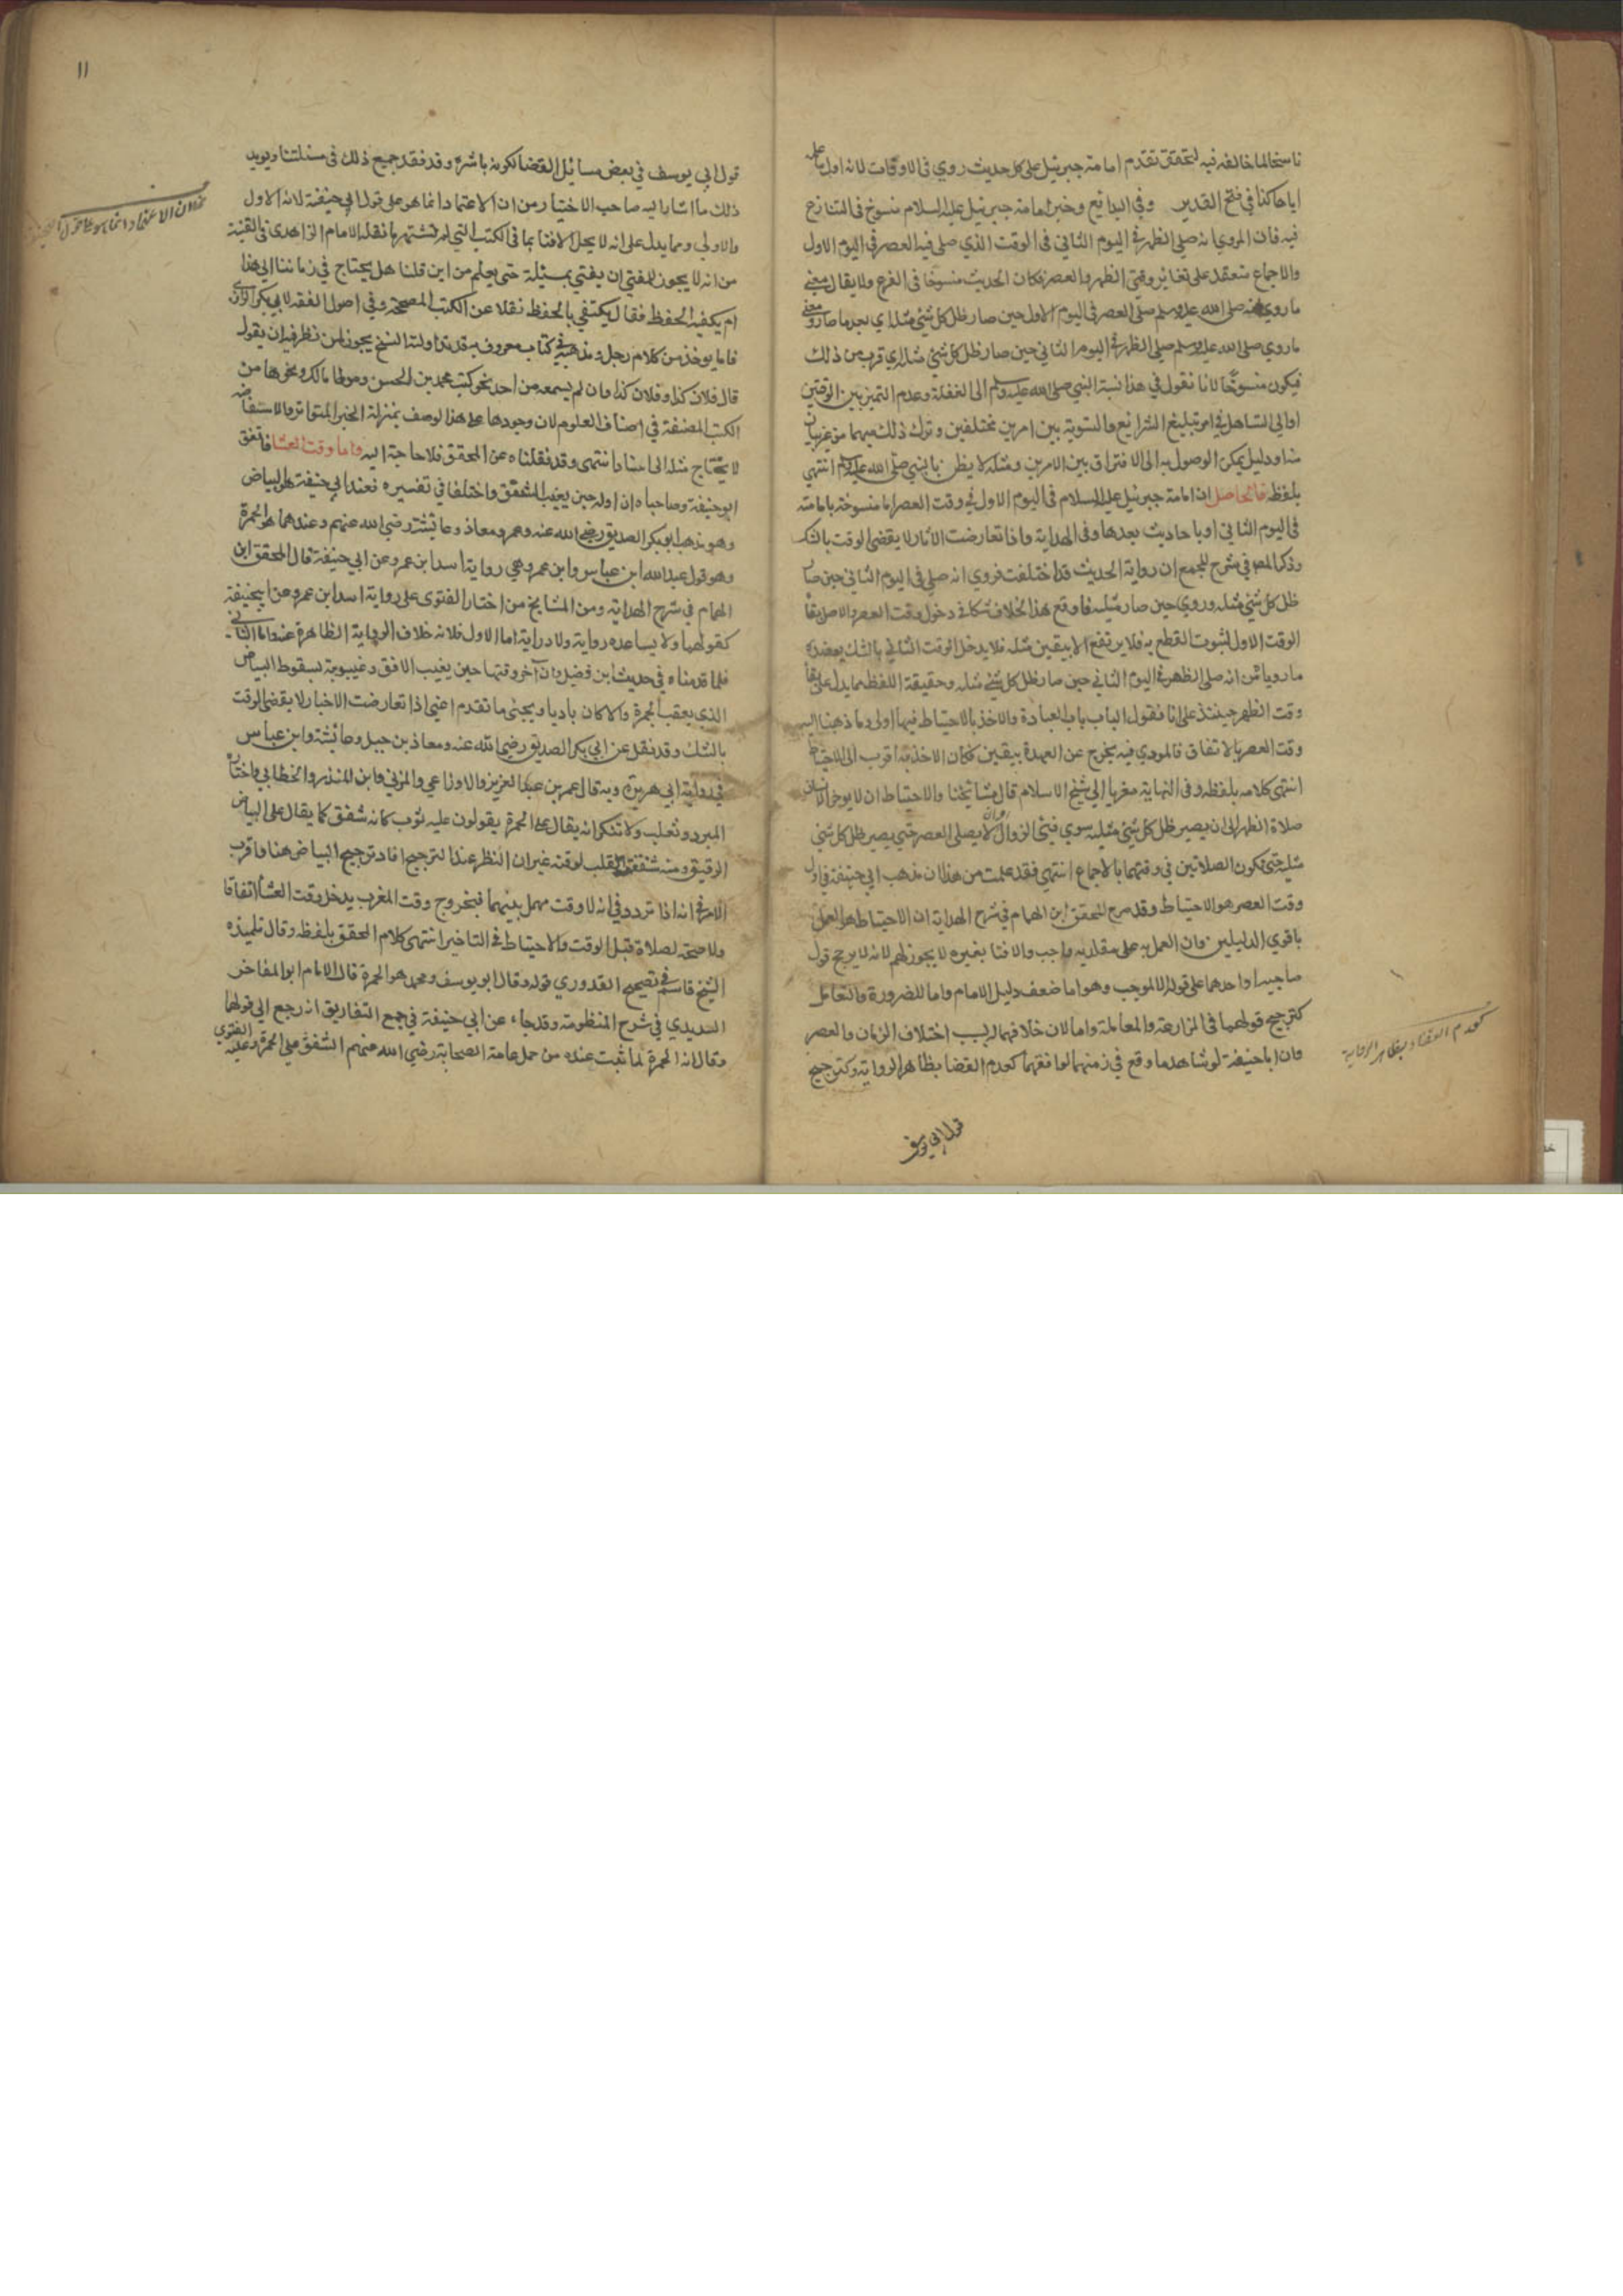 ناسخا لما خالفه فيه لتحقق تقدم امامة جبرئيل على كل حديث روي في الاوقات لانه اول ما علمه
اياها كذا في فتح القدير وفي البدائع وخبر امامة جبرئيل عليه السلام منسوخ في المتنازع
فيه فان المروي انه صلى الظهر في اليوم الثاني في الوقت الذي صلى فيه العصر في اليوم الاول
والاجماع منعقد على تغاير وقتي الظهر والعصر فكان الحديث منسوخا في الفرع ولا يقال معنى
ما روي انه صلى الله عليه وسلم صلى العصر في اليوم الاول حين صار ظل كل شئ مثله اي بعد ما صار ومعنى
ما روي صلى الله عليه وسلم صلى الظهر في اليوم الثاني حين صار ظل كل شئ مثله اي قرب من ذلك
فيكون منسوخا لانا نقول في هذا نسبة النبي صلى الله عليه وسلم الى الغفلة وعدم التميز بين الوقتين
او الى التساهل في امر تبليغ الشرائع والتسوية بين امرين مختلفين وترك ذلك مبهما من غير بيان
منه او دليل يمكن الوصول به الى الافتراق بين الامرين ومثله لا يظن بالنبي صلى الله عليه وسلم انتهى
بلفظه فالحاصل ان امامة جبرئيل عليه السلام في اليوم الاول في وقت العصر اما منسوخة بامامته
في اليوم الثاني او باحاديث بعدها وفي الهداية واذا تعارضت الآثار لا يقضى الوقت بالشك
وذكر المص في شرح المجمع ان رواية الحديث قد اختلفت فروي انه صلى في اليوم الثاني حين صار
ظل كل شئ مثله وروي حين صار مثليه فاوقع هذا الخلاف شكا في دخول وقت العصر والاصل بقاء
الوقت الاول لثبوت القطع به فلا يرتفع الا بيقين مثله فلا يدخل الوقت الثاني بالشك يعضده
ما رويا من انه صلى الظهر في اليوم الثاني حين صار ظل كل شئ مثله وحقيقة اللفظ مما يدل على بقاء
وقت الظهر حينئذ على انا نقول الباب باب العبادة والاخذ بالاحتياط فيها اولى وما ذهبنا اليه
وقت العصر بالاتفاق فالمودي فيه يخرج عن العهدة بيقين فكان الاخذ به اقرب الى الاحتياط
انتهى كلامه بلفظه وفي النهاية مغربا الى شيخ الاسلام قال مشائخنا والاحتياط ان لا يوخر الانسان
صلاة الظهر الى ان يصير ظل كل شئ مثليه سوي فيئ الزوال وان لا يصلى العصر حتى يصير ظل كل شئ
مثليه حتى تكون الصلاتين في وقتهما بالاجماع انتهى فقد علمت من هذا ان مذهب ابي حنيفة في اول
وقت العصر هو الاحتياط وقد صرح المحقق ابن الهمام في شرح الهداية ان الاحتياط هو العمل
باقوي الدليلين وان العمل به على مقلديه واجب والافتا بغيره لا يجوز لهم لانه لا يرجح قول
صاحبيه او احدهما على قوله الا لموجب وهو اما ضعف دليل الامام واما للضرورة والتعامل
كترجيح قولهما في المزارعة والمعاملة واما لان خلافهما له بسبب اختلاف الزمان والعصر
وان ابا حنيفة لو شاهد ما وقع في زمنهما لوافقهما كعدم القضا بظاهر الرواية وكترجيح
كعدم القضاء بظاهر الرواية
قول ابي يوسف
١١
قول ابي يوسف في بعض مسائل القضا لكونه باشره وقد فقد جميع ذلك في مسئلتنا ويويد
ذلك ما اشار اليه صاحب الاختيار من ان الاعتماد انما هو على قول ابي حنيفة لانه الاول
والاولى ومما يدل على انه لا يحل الافتا بما في الكتب التي لم تشتهر ما نقله الامام الزاهدي في القنية
من انه لا يجوز للمفتي ان يفتي بمسئلة حتى يعلم من اين قلنا هل يحتاج في زماننا الى هذا
ام يكفيه الحفظ فقال يكتفي بالحفظ نقلا عن الكتب المصححة وفي اصول الفقه لابي بكر الرازي
فاما يوخذ من كلام رجل ومذهبه في كتاب معروف به قد تداولته النسخ يجوز لمن نظر فيه ان يقول
قال فلان كذا وفلان كذا وان لم يسمعه من احد نحو كتب محمد بن الحسن وموطا مالك ونحوها من
الكتب المصنفة في اصناف العلوم لان وجودها على هذا الوصف بمنزلة الخبر المتواتر والاستفاضة
لا يحتاج مثله الى اسناد انتهى وقد نقلناه عن المحقق فلا حاجة اليه واما وقت العشا فاتفق
ابو حنيفة وصاحباه ان اوله حين يغيب الشفق واختلفا في تفسيره فعند ابي حنيفة هو البياض
وهو مذهب ابو بكر الصديق رضي الله عنه وعمر ومعاذ وعائشة رضي الله عنهم وعندهما هو الحمرة
وهو قول عبد الله ابن عباس وابن عمر وهي رواية اسد ابن عمرو عن ابي حنيفة قال المحقق ابن
الهمام في شرح الهداية ومن المشايخ من اختار الفتوى على رواية اسد ابن عمرو عن ابي حنيفة
كقولهما ولا يساعده رواية ولا دراية اما الاول فلانه خلاف الرواية الظاهرة عنه واما الثاني
فلما قدمناه في حديث ابن فضيل وان آخر وقتها حين يغيب الافق وغيبوبته بسقوط البياض
الذي يعقب الحمرة والا كان باديا ويجئ ما تقدم اعني اذا تعارضت الاخبار لا يقضى الوقت
بالشك وقد نقل عن ابي بكر الصديق رضي الله عنه ومعاذ بن جبل وعائشة وابن عباس
في رواية ابي هريرة وبه قال عمر بن عبد العزيز والاوزاعي والمزني وابن المنذر والخطابي واختاره
المبرد وثعلب ولا تنكر انه يقال على الحمرة يقولون عليه ثوب كانه شفق كما يقال على البياض
الرقيق ومنه شفقة القلب لرقته غير ان النظر عند الترجيح افاد ترجيح البياض هنا واقرب
الامر في انه اذا تردد في انه لا وقت مهمل بينهما فبخروج وقت المغرب يدخل وقت العشا اتفاقا
ولا صحة لصلاة قبل الوقت والاحتياط في التاخير انتهى كلام المحقق بلفظه وقال تلميذه
الشيخ قاسم في تصحيح القدوري قوله وقال ابو يوسف ومحمد هو الحمرة قال الامام ابو المفاخر
السديدي في شرح المنظومة وقد جاء عن ابي حنيفة في جمع التفاريق انه رجع الى قولهما
وقال انه الحمرة لما ثبت عنده من حمل عامة الصحابة رضي الله عنهم الشفق على الحمرة وعليه الفتوي
ان الاعتماد انما هو على قول